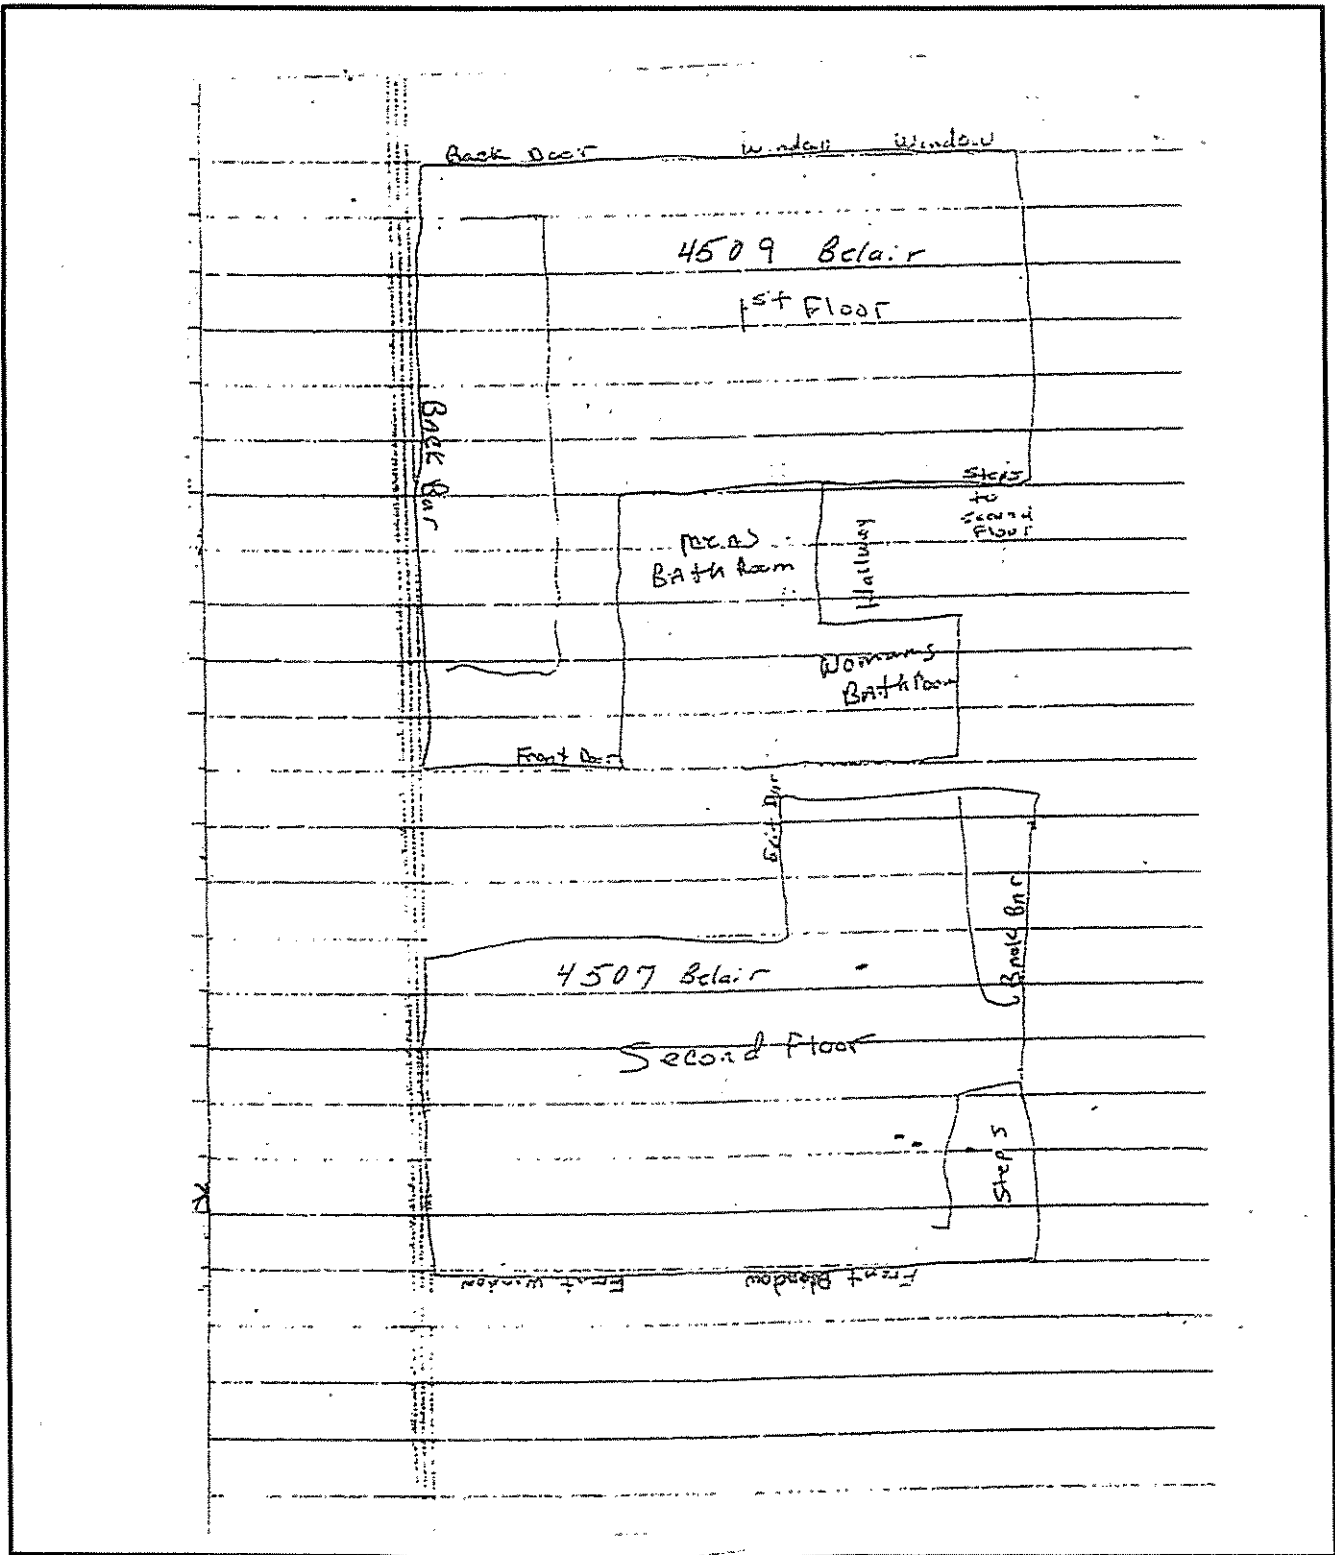 Back Door Window Window
4509 Belair
1st Floor
Back Bar
Steps
to
Second
Floor
Mens
BAth Room
Hallway
Womans
BAth Room
Front Door
Exit Dor
Back Bar
4507 Belair
Second Floor
Steps
Front Window Front Window